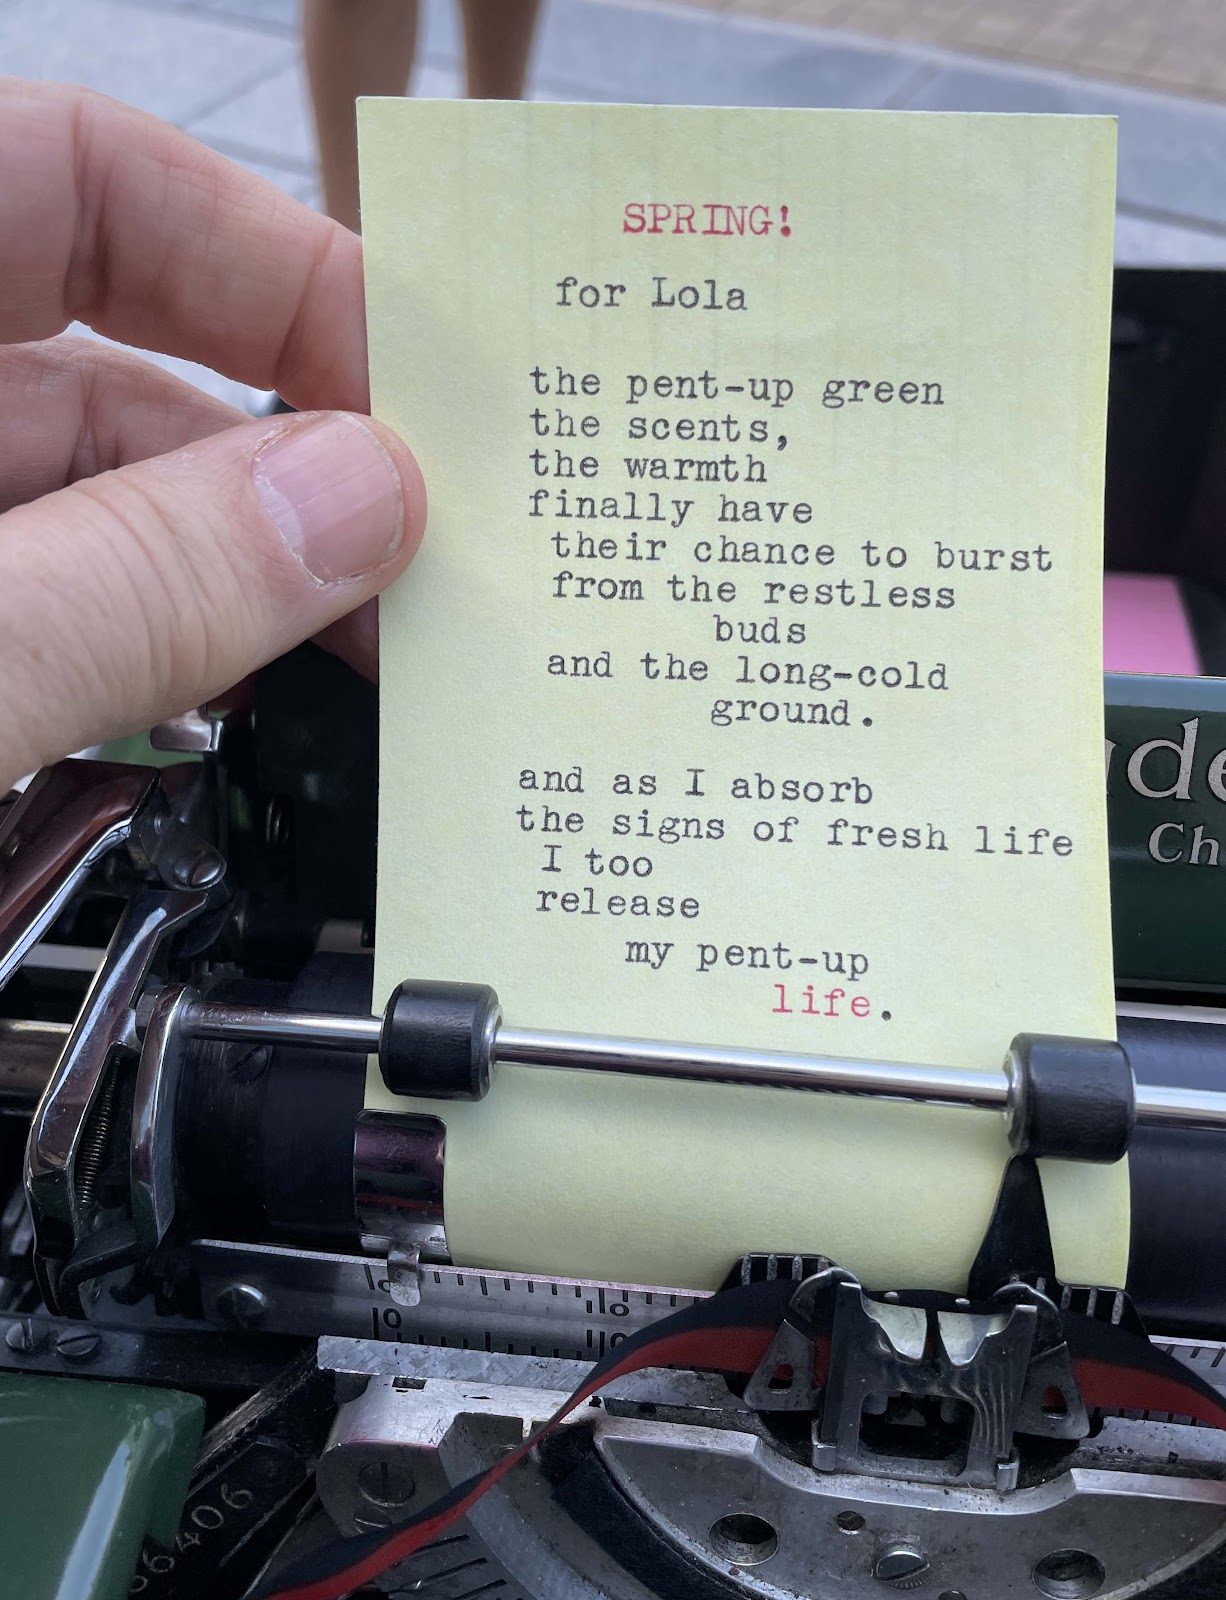 SPRING!
for Lola
the pent-up green
the scents,
the warmth
finally have
their chance to burst
from the restless
buds
and the long-cold
ground.
and as I absorb
the signs of fresh life
I too
release
my pent-up
life.
0
10
0
10
6406